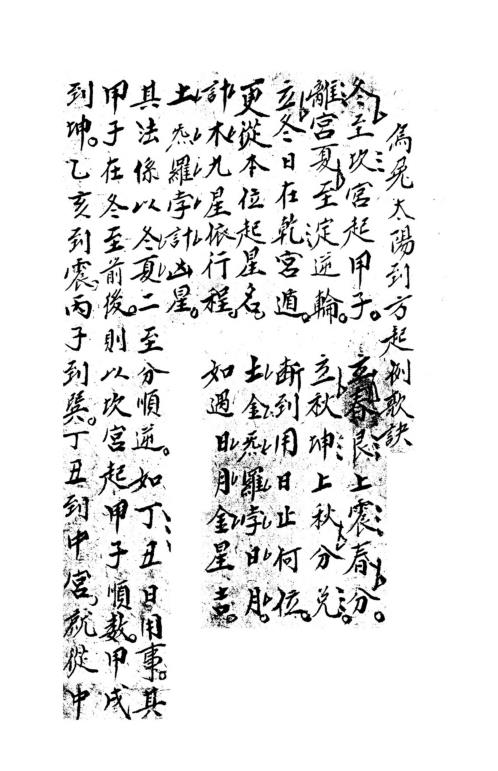 烏兔太陽到方起例歌訣
冬至坎宮起甲子。立春艮上震春分。
離宮夏至淀逆輪。立秋坤上秋分兌。
立冬日在乾宮遁。断到用日止何位。
更從本位起星名 土金炁羅孛日月。
計木九星依行程。如遇日月金星吉。
土炁羅孛計凶星。
其法係以冬夏二至分順逆。如丁丑日用事。其
甲子在冬至前後。則以坎宮起甲子順数。甲戌
到坤。乙亥到震。丙子到巽。丁丑到中宮。就從中